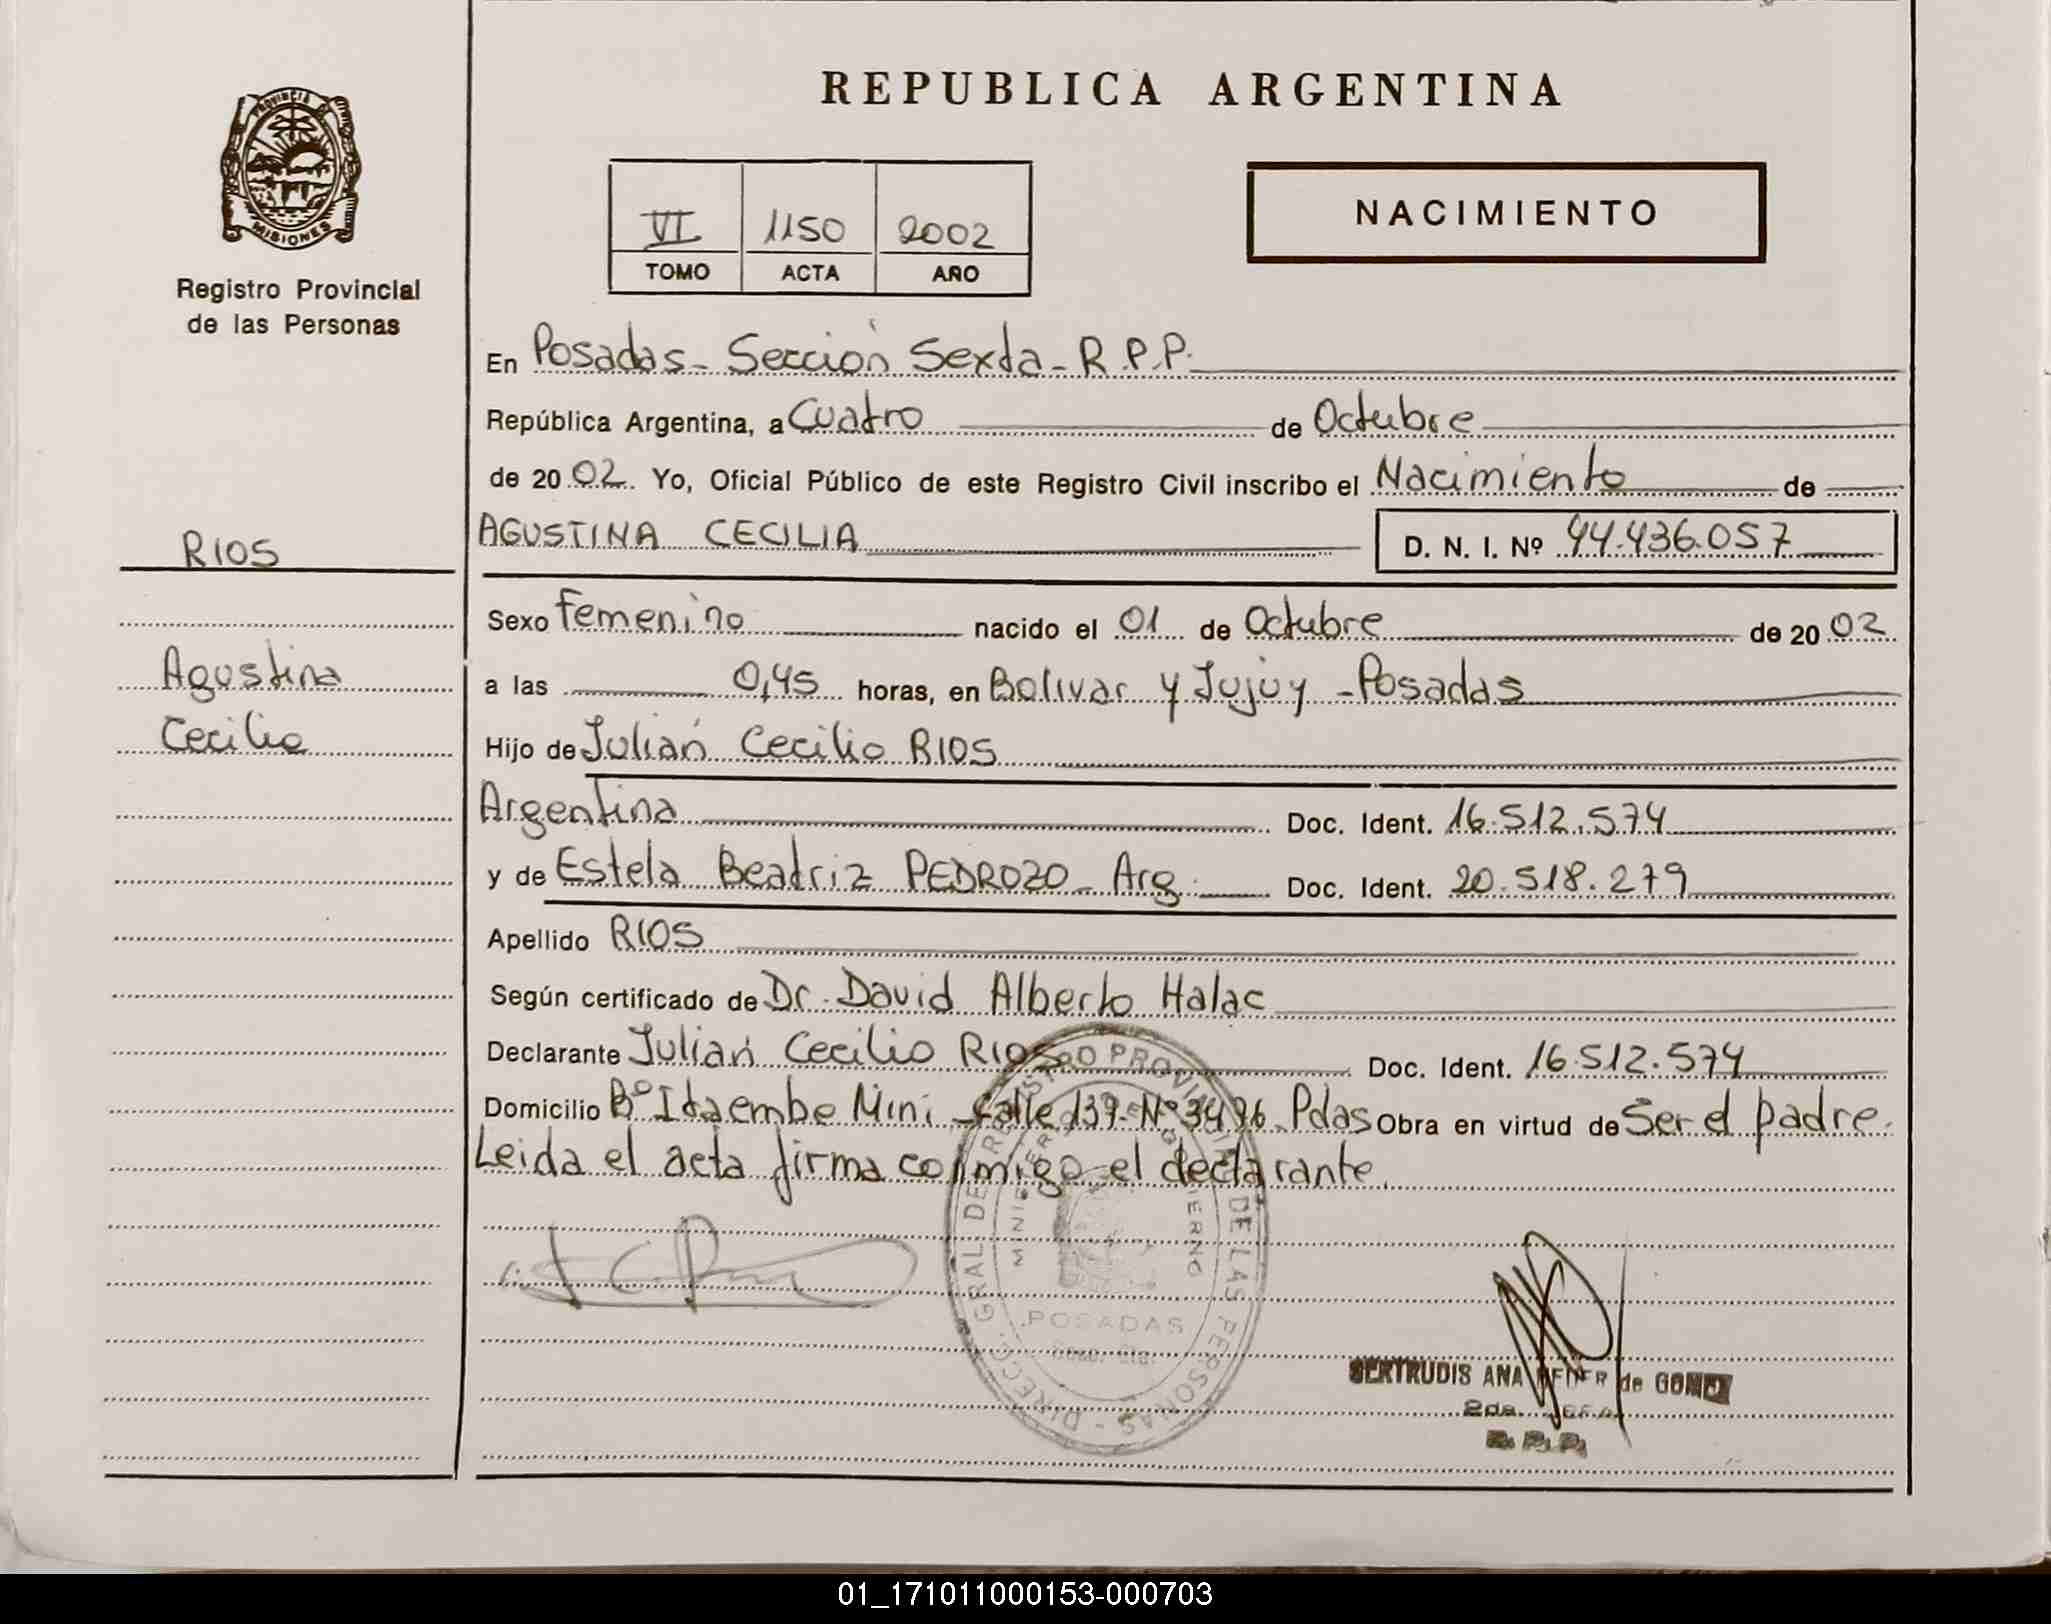 REPUBLICA ARGENTINA
PROVINCIA DE
MISIONES
Registro Provincial
de las Personas
VI 1150 2002
TOMO ACTA AÑO
NACIMIENTO
En Posadas - Sección Sexta - R.P.P.
República Argentina, a Cuatro de Octubre
de 2002. Yo, Oficial Público de este Registro Civil inscribo el Nacimiento de
RIOS
AGUSTINA CECILIA D. N. I. Nº 44.436.057
Sexo Femenino nacido el 01 de Octubre de 2002
Agustina
Cecilia
a las 0,45 horas, en Bolivar y Jujuy - Posadas
Hijo de Julián Cecilio RIOS
Argentina Doc. Ident. 16.512.574
y de Estela Beatriz PEDROZO - Arg. Doc. Ident. 20.518.279
Apellido RIOS
Según certificado de Dr. David Alberto Halac
Declarante Julián Cecilio RIOS Doc. Ident. 16.512.574
Domicilio Bº Itaembe Mini - Calle 139 - Nº 3496 Pdas Obra en virtud de Ser el padre.
Leida el acta firma conmigo el declarante.
DIRECC. GRAL DE REGISTRO PROVINCIAL DE LAS PERSONAS
POSADAS
GERTRUDIS ANA de
2da.
R.P.P.
01_171011000153-000703